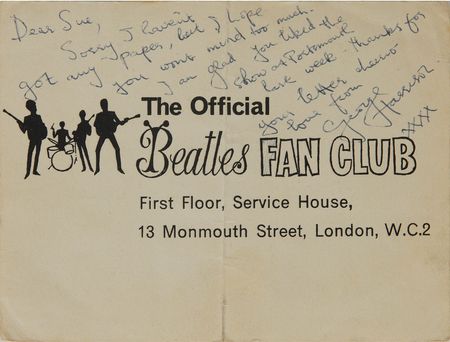 Dear Sue,
Sorry I haven't
got any paper, but I hope
you wont mind too much.
I am glad you liked the
show at Portsmouth
last week. thanks for
your letter cheerio
love from
George
Harrison
xxxx
The Official
Beatles FAN CLUB
First Floor, Service House,
13 Monmouth Street, London, W.C.2